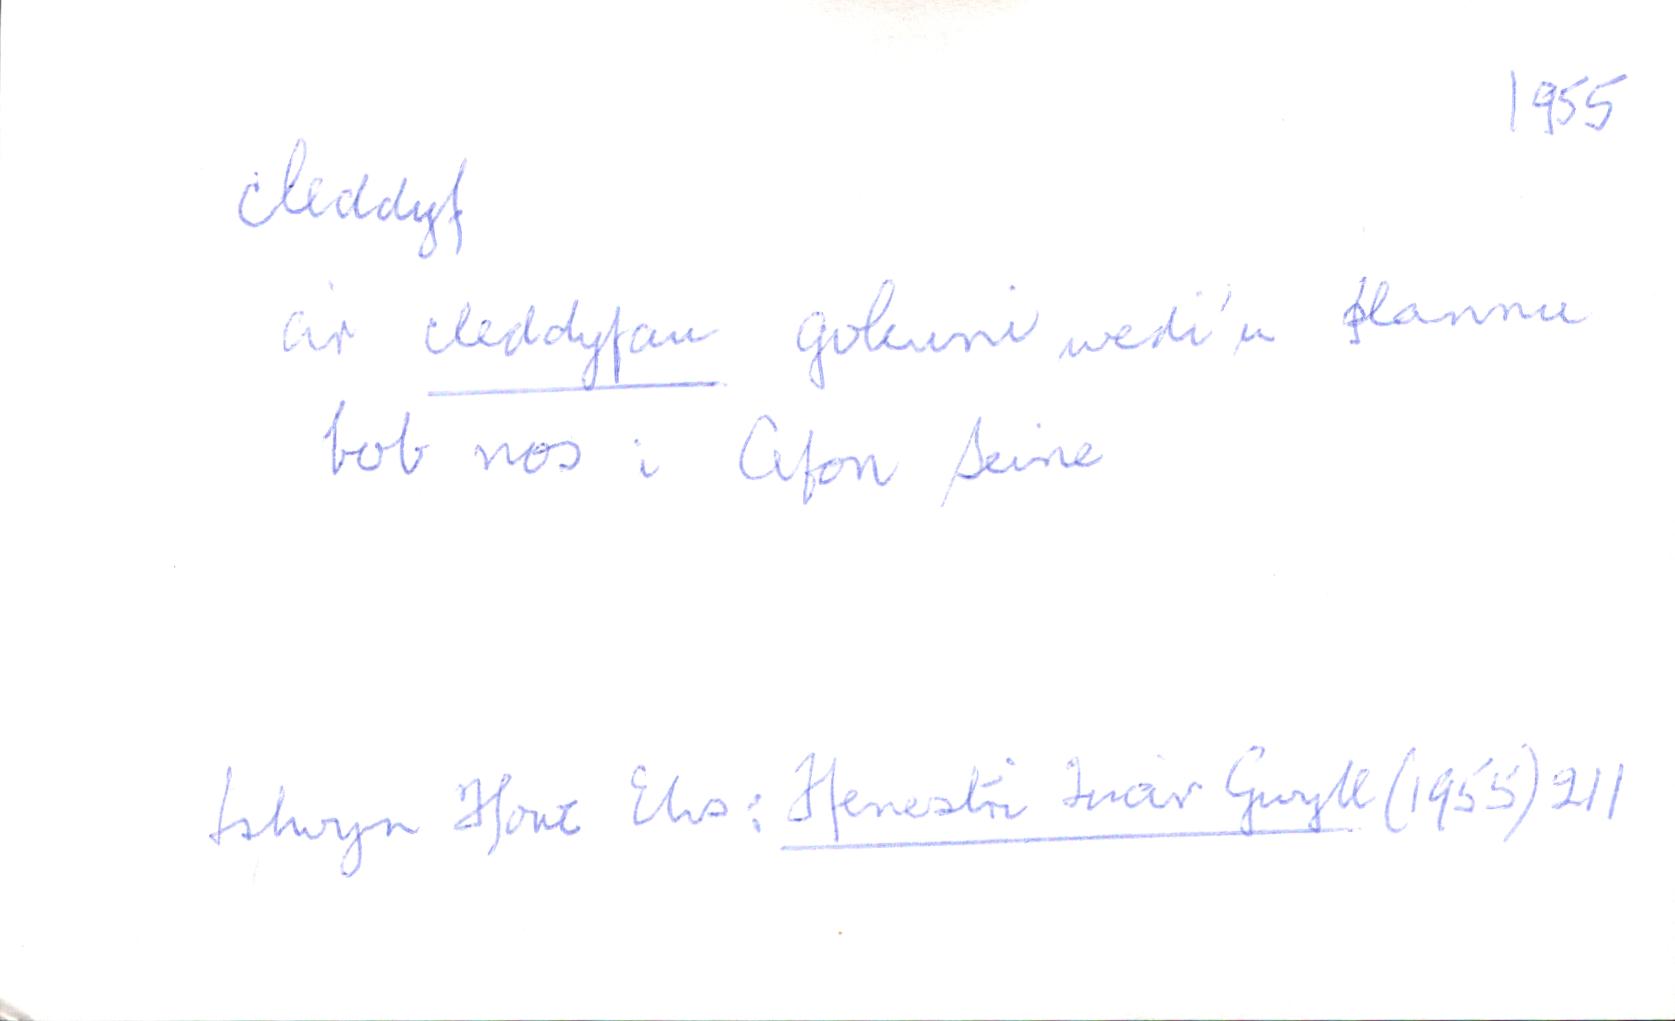 1955
cleddyf
a'r cleddyfau goleuni wedi'u plannu
bob nos i Afon Seine
Islwyn Ffowc Elis: Ffenestri Tua'r Gwyll (1955) 211